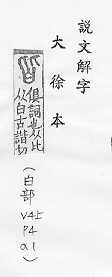 說文解字
大徐本
俱詞也从比
从白古諧切
(白部
V4.5
P4
a1)